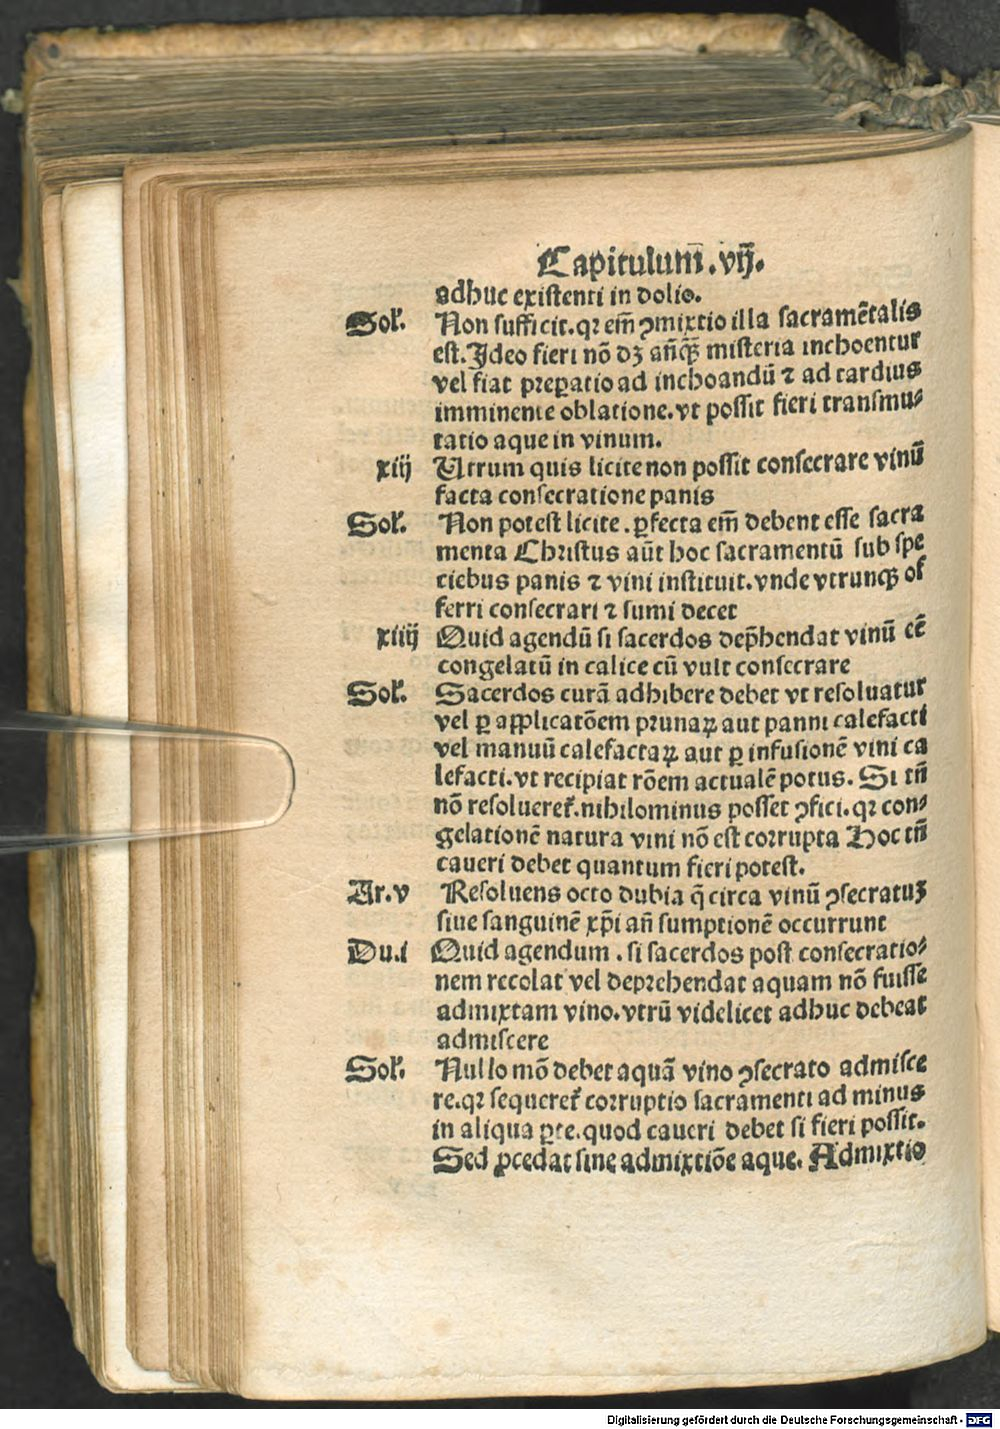 Capitulum̄.vij.
adhuc existenti in dolio.
Sol'. Non sufficit.qꝛ em̄ ꝯmixtio illa sacramētalis
est.Ideo fieri nō dꝫ añꝙ̄ misteria inchoentur
vel fiat prepatio ad inchoandū ⁊ ad tardius
imminente oblatione.vt possit fieri transmu⸗
tatio aque in vinum.
xiij Utrum quis licite non possit consecrare vinū
facta consecratione panis
Sol'. Non potest licite.ꝑfecta em̄ debent esse sacra
menta Christus aūt hoc sacramentū sub spe
ciebus panis ⁊ vini instituit.vnde vtrunqꝫ of
ferri consecrari ⁊ sumi decet
xiiij Quid agendū si sacerdos dep̄hendat vinū eē
congelatū in calice cū vult consecrare
Sol'. Sacerdos curā adhibere debet vt resoluatur
vel ꝑ applicatōem prunaꝝ aut panni calefacti
vel manuū calefactaꝝ aut ꝑ infusionē vini ca
lefacti.vt recipiat rōem actualē potus. Si tñ
nō resolueret᷑.nihilominus posset ꝯfici.qꝛ con⸗
gelationē natura vini nō est corrupta Hoc tñ
caueri debet quantum fieri potest.
Ar.v Resoluens octo dubia q̄ circa vinū ꝯsecratuꝫ
siue sanguinē xp̄i añ sumptionē occurrunt
Du.i Quid agendum . si sacerdos post consecratio⸗
nem recolat vel deprehendat aquam nō fuisse
admixtam vino.vtrū videlicet adhuc debeat
admiscere
Sol'. Nullo mō debet aquā vino ꝯsecrato admisce
re.qꝛ sequeret᷑ corruptio sacramenti ad minus
in aliqua ꝑte.quod caueri debet si fieri possit.
Sed ꝓcedat sine admixtiōe aque. Admixtio
Digitalisierung gefördert durch die Deutsche Forschungsgemeinschaft - DFG